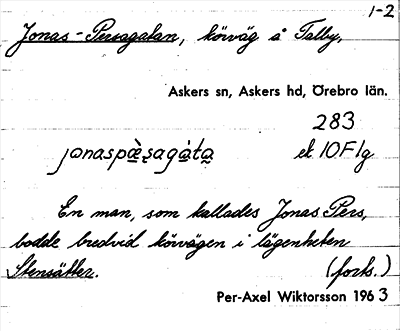 1-2
Jonas-Persagatan, körväg å Talby,
Askers sn, Askers hd, Örebro län.
283
jonaspæ̀ʂagàta̱ ek. 10F1g
En man, som kallades Jonas Pers,
bodde bredvid körvägen i lägenheten
Stensätter. (forts.)
Per-Axel Wiktorsson 1963